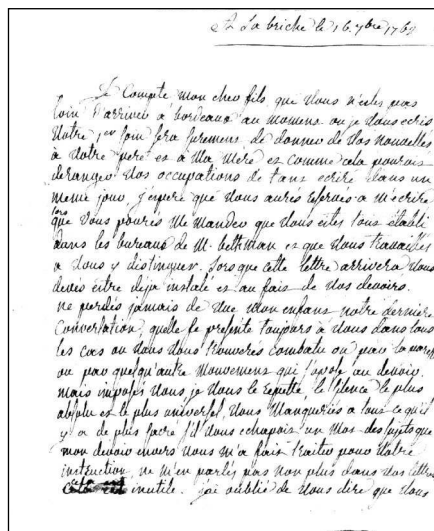 A La briche le 16 7bre 1769
Je Compte mon cher fils, que Vous n'estes pas
loin d'arriver a bordeaux au moment ou je Vous ecris
Votre 1er soin sera surement de donner de Vos nouvelles
à Votre pere et a Ma Mere et comme cela pourais
deranger Vos occupations de tant ecrire dans un
meme jour, j'espere que Vous aures a m'ecrire
lors que Vous poures Me Mander que Vous estes tous établi
dans les bureaux de M. bethman et que Vous travailles
a Vous y distinguer. Lors que cette lettre arrivera Vous
deves estre deja instalé et au fais de Vos devoirs.
ne perdés jamais de Vue Mon enfans notre derniere
Conversation, quelle se presente toujours à Vous dans tous
les cas ou Vous Vous trouverés combatu ou par la paresse
ou par quelqu'autre Mouvement qui s'opose au devoir.
Mais imposés Vous, je Vous le repette, le silence le plus
absolu et le plus universel. Vous Manqueriés a tous ce qu'il
y a de plus sacré s'il Vous echapois un Mot des sujets que
mon devoir envers Vous m'a fais traiter pour Votre
instruction, ne m'en parlés pas non plus dans Vos lettres
cela est inutile. j'ai oublié de Vous dire que Vous